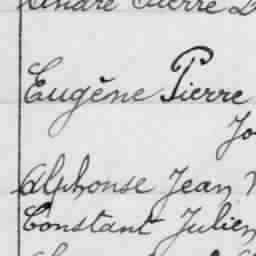 Pierre
Eugène Pierre
Jo
Alphonse Jean
Constant Julien